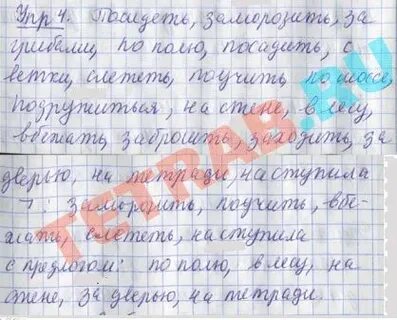 Упр 4. Посидеть, заморозить, за
грибами, по полю, посадить, с
ветки, слететь, поучить, по шоссе,
подружиться, на стене, в лесу,
вбежать, забросить, заходить, за
дверью, на тетради, наступила
¬: заморозить, поучить, вбе-
жать, слететь, наступила
с предлогом: по полю, в лесу, на
стене, за дверью, на тетради.
TETRAB.RU